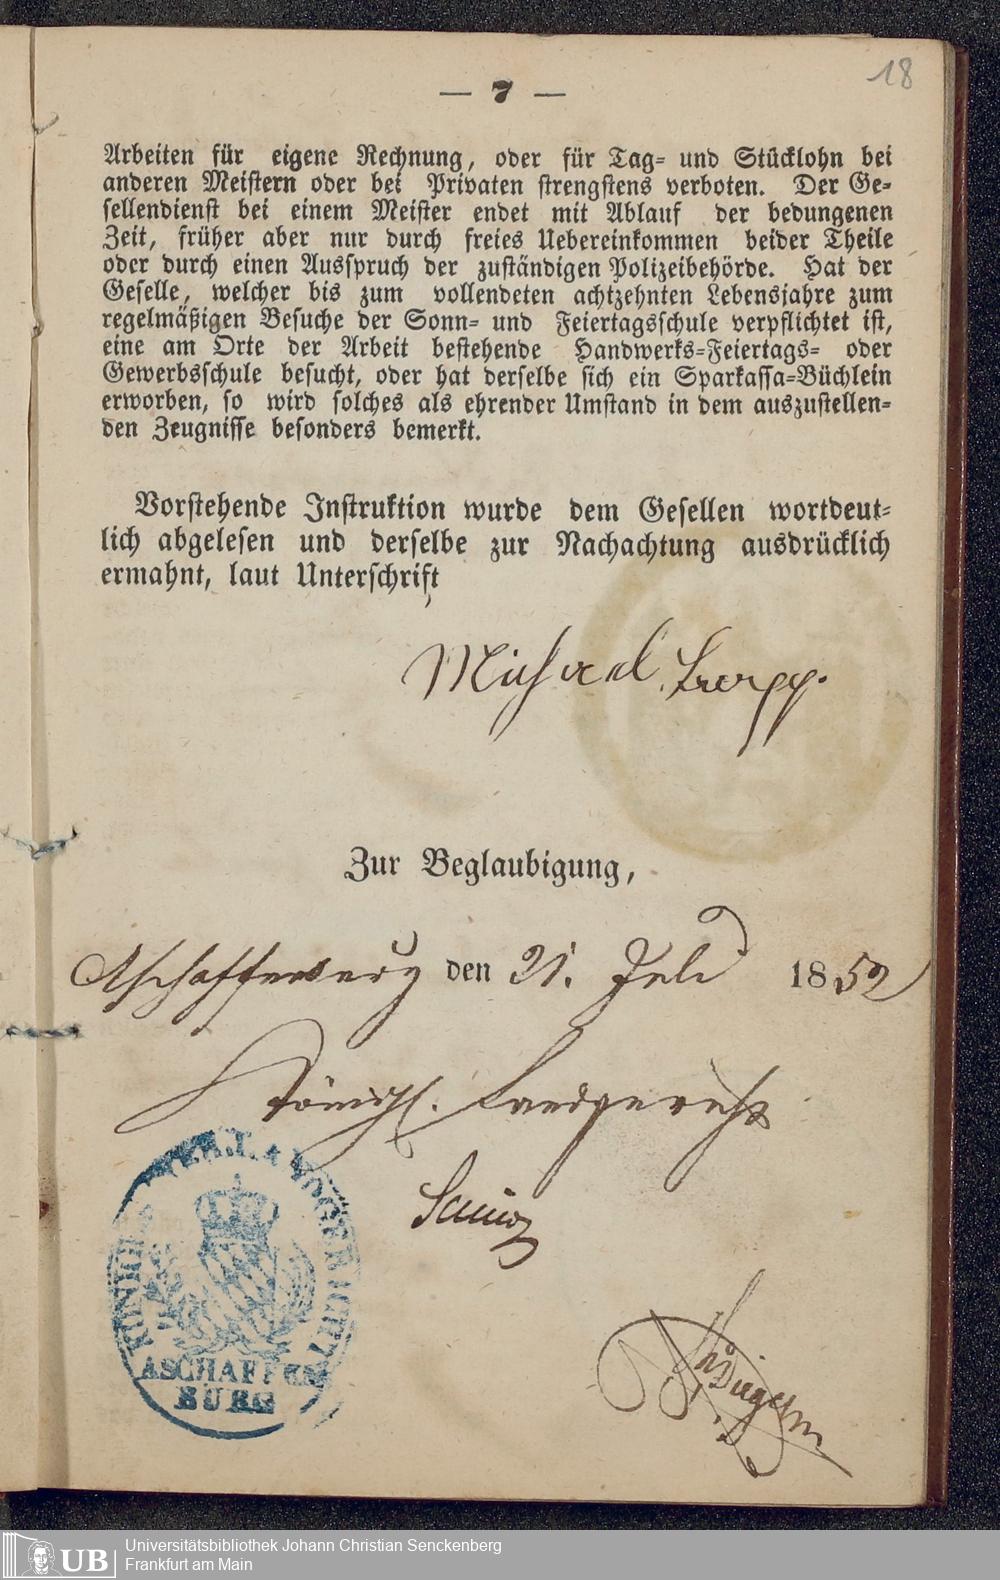 18
— 7 —
Arbeiten für eigene Rechnung, oder für Tag- und Stücklohn bei
anderen Meistern oder bei Privaten strengstens verboten. Der Ge-
sellendienst bei einem Meister endet mit Ablauf der bedungenen
Zeit, früher aber nur durch freies Uebereinkommen beider Theile
oder durch einen Ausspruch der zuständigen Polizeibehörde. Hat der
Geselle, welcher bis zum vollendeten achtzehnten Lebensjahre zum
regelmäßigen Besuche der Sonn- und Feiertagsschule verpflichtet ist,
eine am Orte der Arbeit bestehende Handwerks-Feiertags- oder
Gewerbsschule besucht, oder hat derselbe sich ein Sparkassa-Büchlein
erworben, so wird solches als ehrender Umstand in dem auszustellen-
den Zeugnisse besonders bemerkt.
Vorstehende Instruktion wurde dem Gesellen wortdeut-
lich abgelesen und derselbe zur Nachachtung ausdrücklich
ermahnt, laut Unterschrift
Michael
Zur Beglaubigung,
Aschaffenburg den 21. Juli 1852
Königl. Landgericht
ASCHAFFEN
BURG
UB
Universitätsbibliothek Johann Christian Senckenberg
Frankfurt am Main